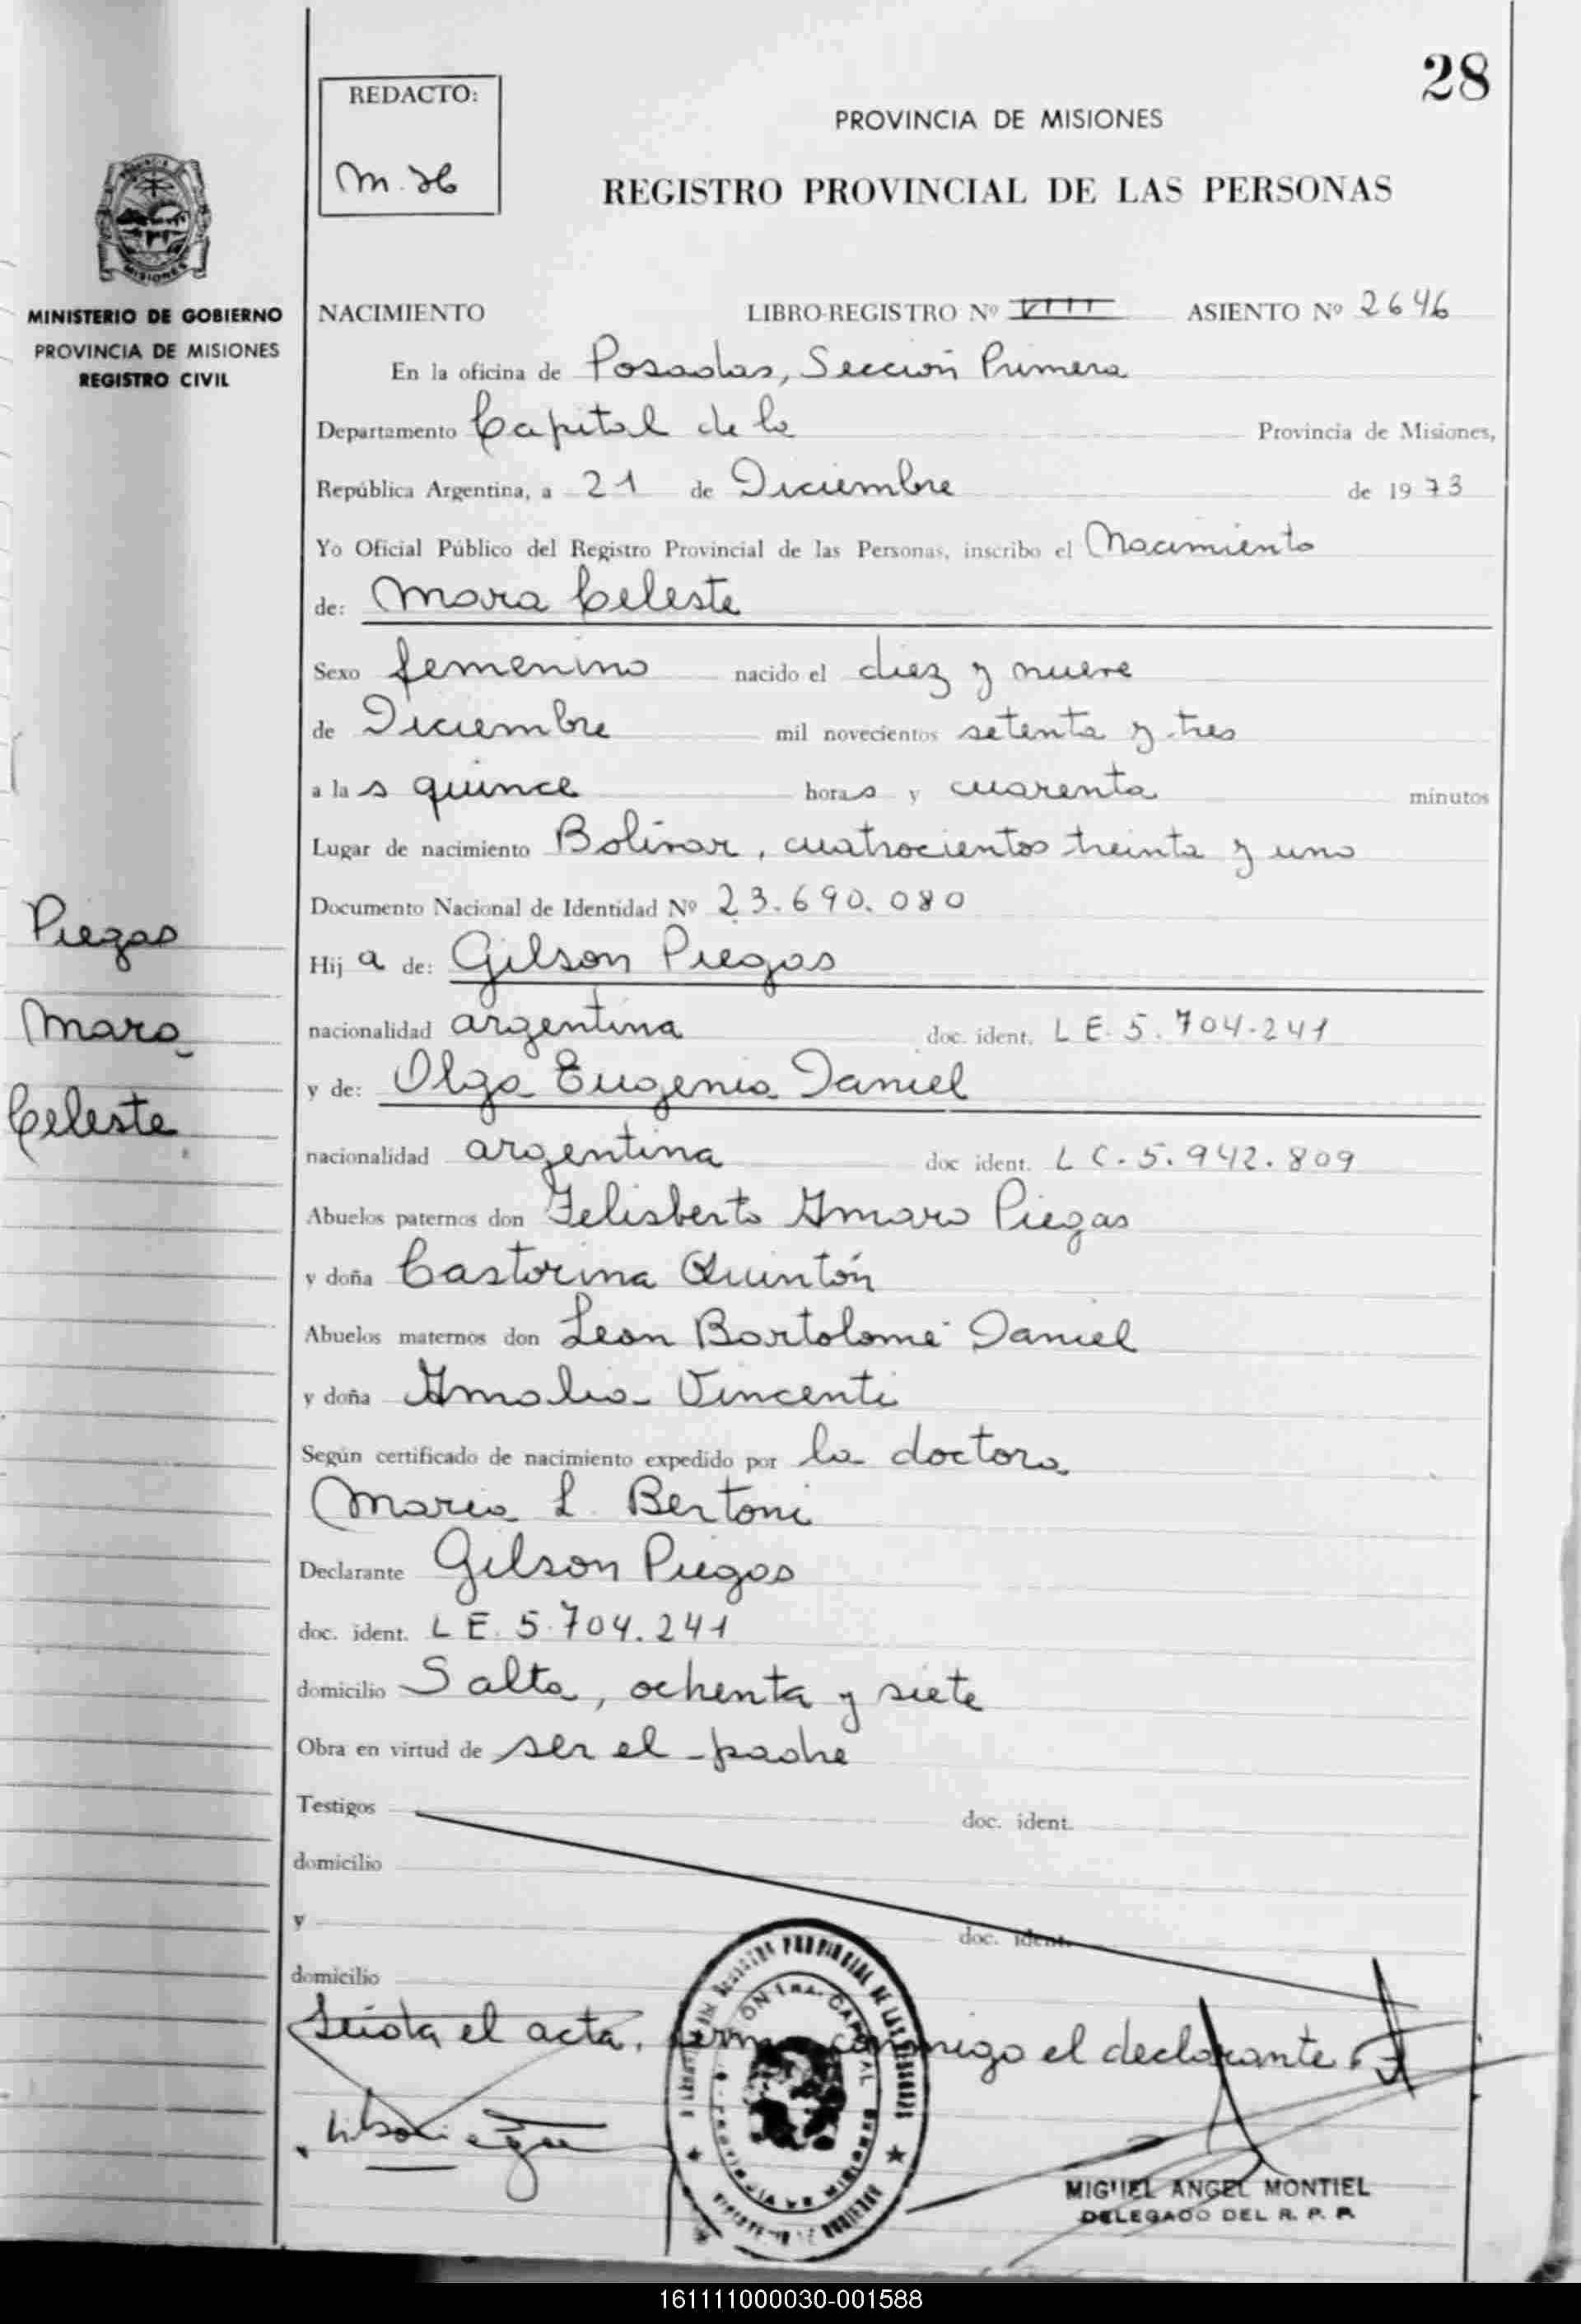 28
REDACTO:
M. H
PROVINCIA DE MISIONES
REGISTRO PROVINCIAL DE LAS PERSONAS
MISIONES
MINISTERIO DE GOBIERNO
PROVINCIA DE MISIONES
REGISTRO CIVIL
NACIMIENTO LIBRO-REGISTRO Nº VIII ASIENTO Nº 2646
En la oficina de Posadas, Sección Primera
Departamento Capital de la Provincia de Misiones,
República Argentina, a 21 de Diciembre de 1973
Yo Oficial Público del Registro Provincial de las Personas, inscribo el Nacimiento
de: Mara Celeste
Sexo femenino nacido el diez y nueve
de Diciembre mil novecientos setenta y tres
a las quince horas y cuarenta minutos
Lugar de nacimiento Bolívar, cuatrocientos treinta y uno
Documento Nacional de Identidad Nº 23.690.080
Piegas
Mara
Celeste
Hija de: Gilson Piegas
nacionalidad argentina doc. ident. L E. 5.704.241
y de: Olga Eugenia Daniel
nacionalidad argentina doc ident. L C. 5.942.809
Abuelos paternos don Felisberto Amaro Piegas
y doña Castorina Quintón
Abuelos maternos don Leon Bartolomé Daniel
y doña Amalia Vincenti
Según certificado de nacimiento expedido por la doctora
Maria L. Bertoni
Declarante Gilson Piegas
doc. ident. L E. 5.704.241
domicilio Salta, ochenta y siete
Obra en virtud de ser el padre
Testigos doc. ident.
domicilio
y doc. ident.
domicilio
Leída el acta, conmigo el declarante
MIGUEL ANGEL MONTIEL
DELEGADO DEL R. P. P.
161111000030-001588